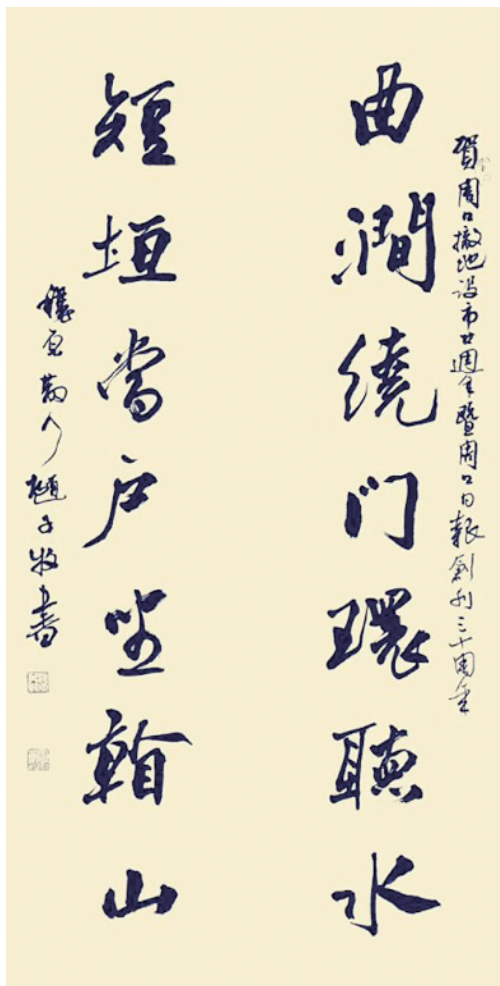 賀周口撤地设市廿週年暨周口日報創刊三十周年
曲澗繞门環聽水
短垣當户坐看山
子牧書